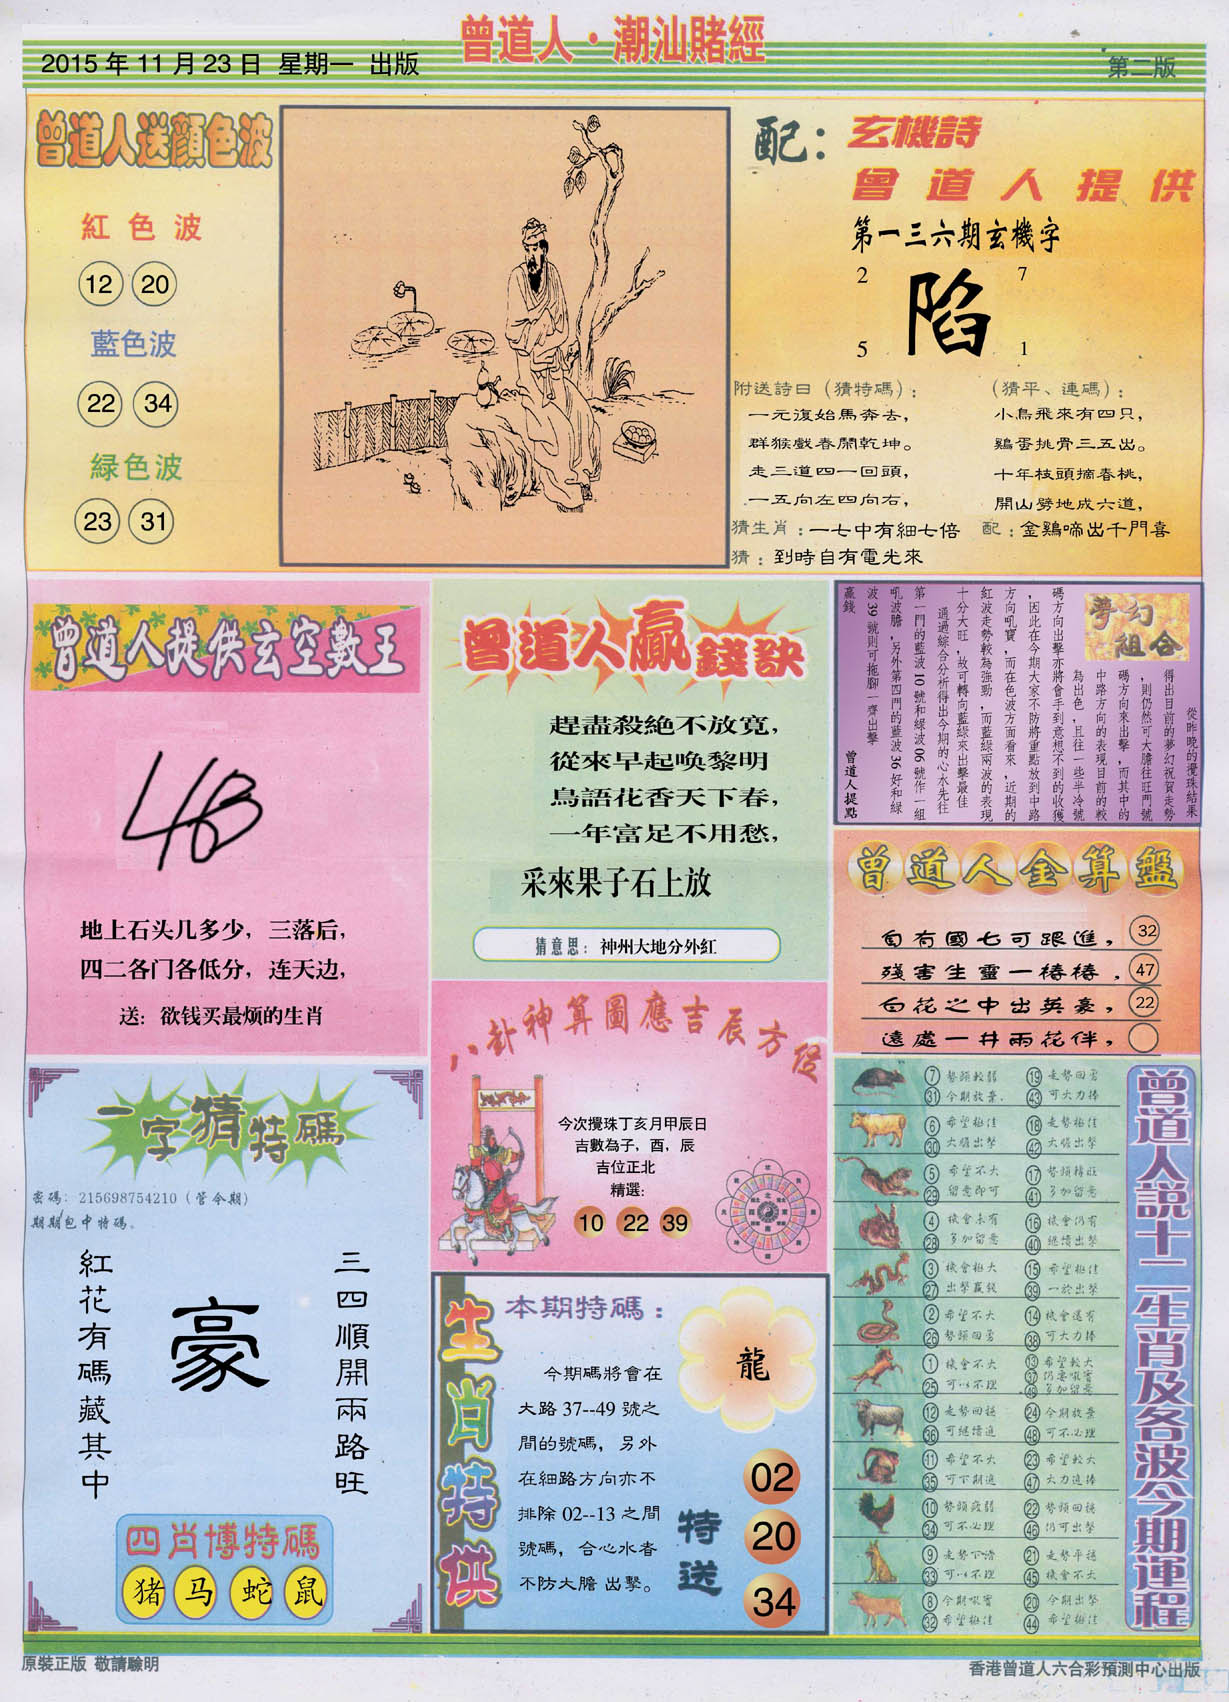 曾道人·潮汕賭經
2015年11月23日 星期一 出版
第二版
曾道人送顏色波
紅色波
12 20
藍色波
22 34
緑色波
23 31
配：玄機詩
曾道人提供
第一三六期玄機字
2 7
陷
5 1
附送詩曰（猜特碼）：
一元復始馬奔去，
群猴戲春鬧乾坤。
走三道四一回頭，
一五向左四向右，
（猜平、連碼）：
小鳥飛來有四只，
鷄蛋挑骨三五出。
十年枝頭摘春桃，
開山劈地成六道，
猜生肖：一七中有細七倍
配：金鷄啼出千門喜
猜：到時自有電光來
曾道人提供玄空數王
地上石头几多少，三落后，
四二各门各低分，连天边，
送：欲钱买最烦的生肖
曾道人贏錢訣
趕盡殺絕不放寬，
從來早起喚黎明
鳥語花香天下春，
一年富足不用愁，
采來果子石上放
猜意思：神州大地分外紅
夢幻
組合
從昨晚的攪珠結果
得出目前的夢幻祝賀走勢
，則仍然可大膽往旺門號
碼方向來出擊，而其中的
中路方向的表現目前的較
為出色，且往一些半冷號
碼方向出擊亦將會手到意想不到的收獲
，因此在今期大家不防將重點放到中路
方向吼寶，而在色波方面看來，近期的
紅波走勢較為強勁，而藍綠兩波的表現
十分大旺，故可轉向藍綠來出擊最佳
通過綜合分析得出今期的心水先往
第一門的藍波10號和綠波06號作一組
吼波膽，另外第四門的藍波36好和綠
波39號則可拖腳一齊出擊
贏錢
曾道人提點
曾道人金算盤
自有國七可跟進， 32
殘害生靈一樁樁． 47
白花之中出英豪， 22
遠處一井兩花伴，
八卦神算圖應吉辰方位
今次攪珠丁亥月甲辰日
吉數為子，酉，辰
吉位正北
精選：
10 22 39
一字猜特碼
密碼：215698754210（管令期）
期期包中特碼。
三四順開兩路旺
豪
紅花有碼藏其中
四肖博特碼
猪 马 蛇 鼠
生肖特供
本期特碼：
龍
今期碼將會在
大路37--49號之
間的號碼，另外
在細路方向亦不
排除02--13之間
號碼，合心水者
不防大膽出擊。
特送
02
20
34
曾道人説十二生肖及各波今期運程
7 勢頭較弱 19 走勢回勇
31 今期放棄． 43 可大力捧
6 希望極佳 18 走勢極佳
30 大膽出擊 42 大膽出擊
5 希望不大 17 勢頭轉旺
29 留意即可 41 多加留意
4 機會未有 16 機會仍有
28 多加留意 40 繼續出擊
3 機會極大 15 希望極佳
27 出擊贏錢 39 一於出擊
2 希望不大 14 機會還有
26 勢頭回勇 38 可大力捧
1 機會不大 13 希望較大
25 可以不理 37 仍要吸實
49 多加留意
12 走勢回穩 24 今期放棄
36 可繼續追 48 可不必理
11 希望不大 23 希望較大
35 可下期追 47 大力追捧
10 勢頭疲弱 22 勢頭回穩
34 可不必理 46 仍可出擊
9 走勢下滑 21 走勢平穩
33 可以不理 45 機會不大
8 今期吸實 20 今期出擊
32 希望極佳 44 希望極佳
原裝正版 敬請驗明
香港曾道人六合彩預測中心出版